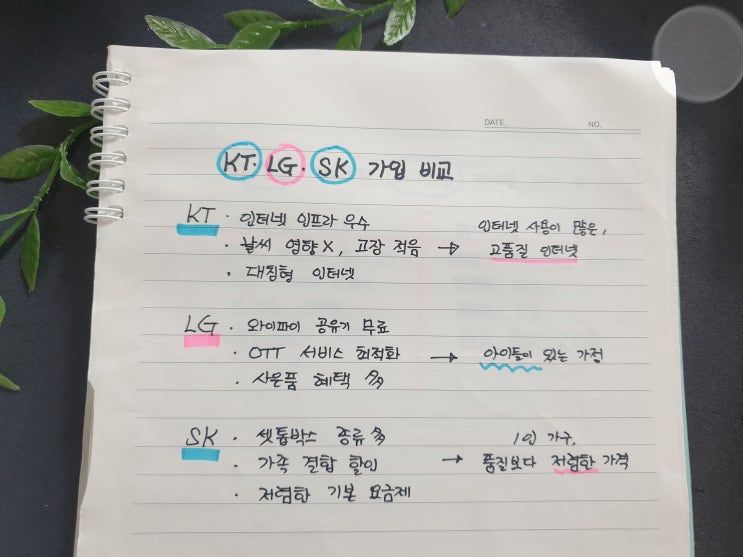 DATE. NO.
KT · LG · SK 가입 비교
KT · 인터넷 인프라 우수
· 날씨 영향 X, 고장 적음 → 인터넷 사용이 많은,
고품질 인터넷
· 대칭형 인터넷
LG · 와이파이 공유기 무료
· OTT 서비스 최적화 → 아이들이 있는 가정
· 사은품 혜택 多
SK · 셋톱박스 종류 多
· 가족 결합 할인 → 1인 가구,
품질보다 저렴한 가격
· 저렴한 기본 요금제